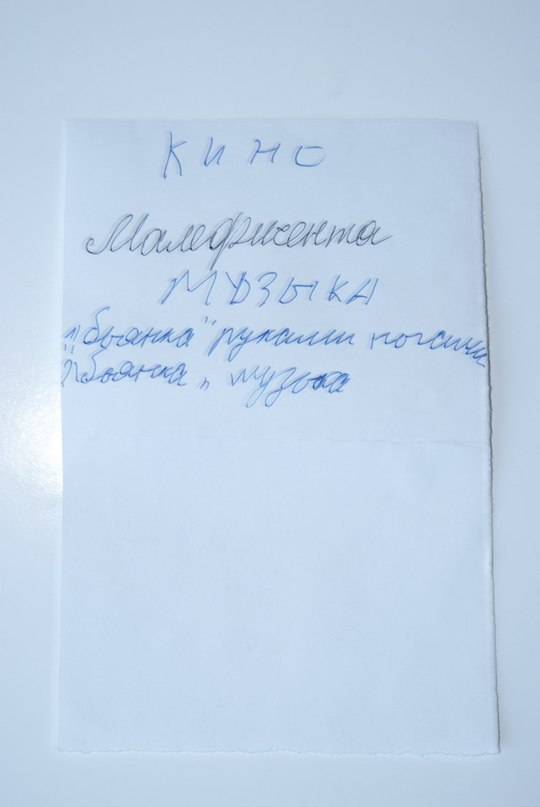 КИНО
Малефисента
МУЗЫКА
1) "Бьянка" руками ногами
2) "Бьянка" музыка